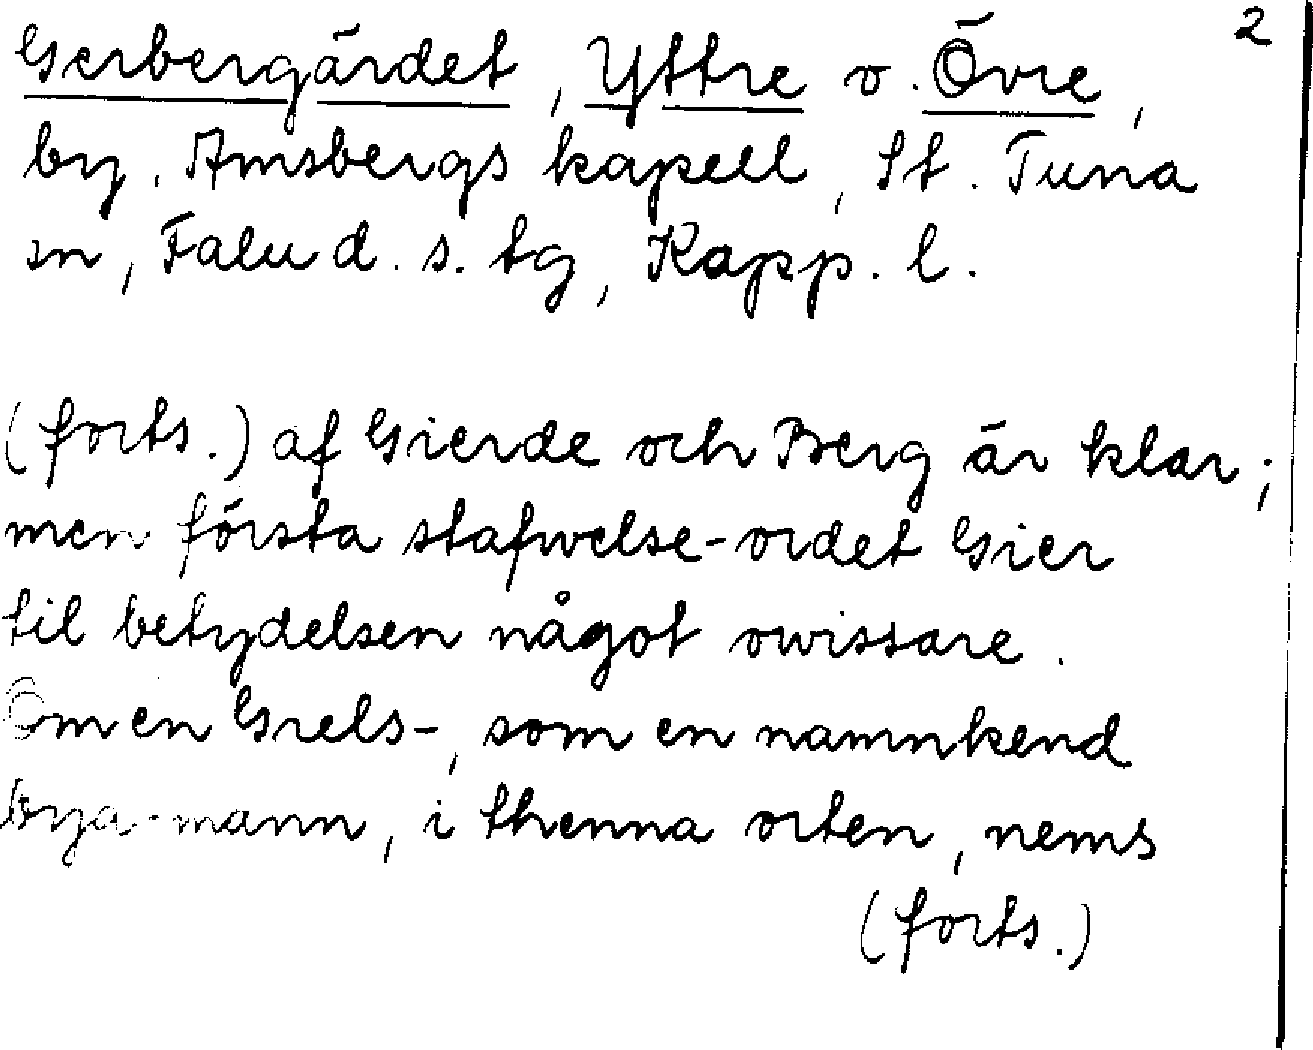 2
Gerbergärdet, Yttre o. Övre,
by, Amsbergs kapell, St. Tuna
sn, Falu d. s. tg, Kopp. l.
(forts.) af Gierde och Berg är klar;
men första stafwelse-ordet Gier
til betydelsen något owissare.
Om en Grels-, som en namnkend
bya-mann, i thenna orten, nems
(forts.)